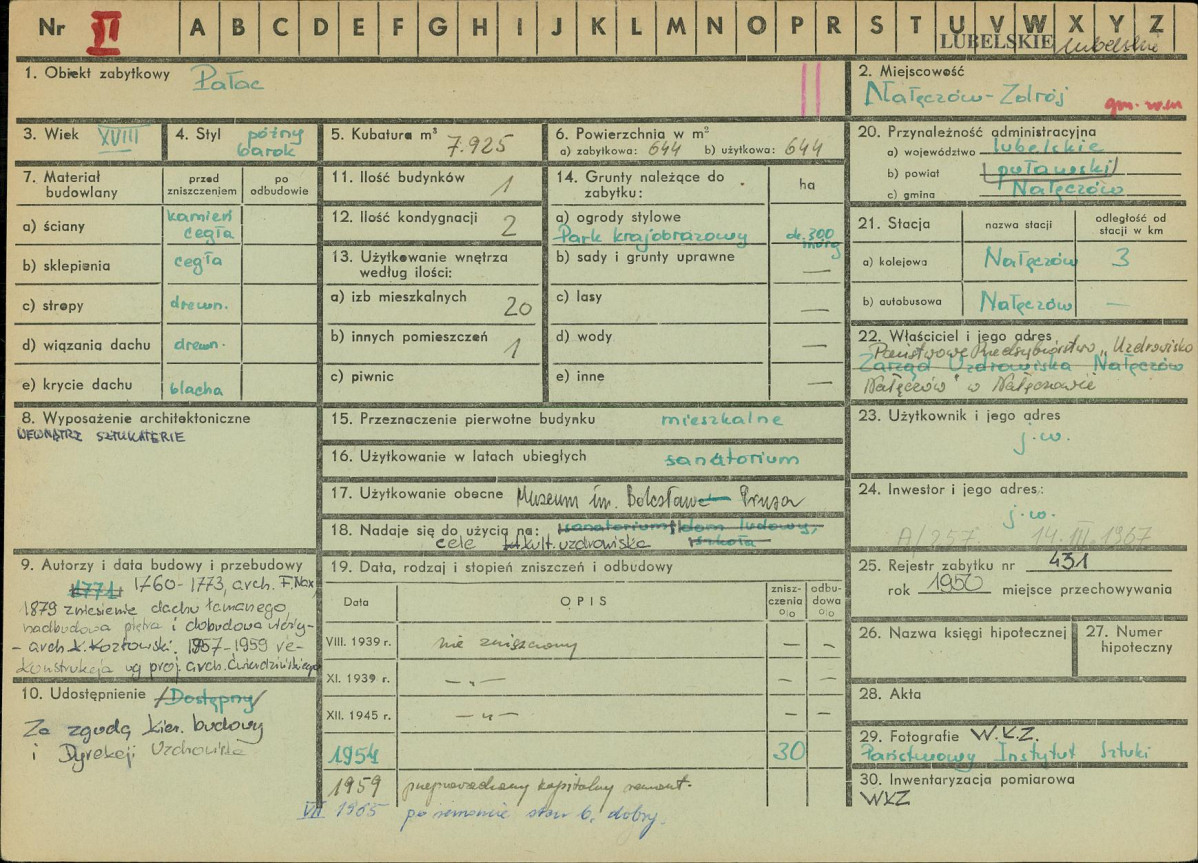 Nr II A B C D E F G H I J K L M N O P R S T U V W X Y Z
LUBELSKIE lubelskie
1. Obiekt zabytkowy Pałac
2. Miejscowość
Nałęczów-Zdrój
3. Wiek XVIII
4. Styl późny
barok
5. Kubatura m³
7.925
6. Powierzchnia w m²
a) zabytkowa: 644 b) użytkowa: 644
20. Przynależność administracyjna
a) województwo lubelskie
b) powiat puławski
c) gmina Nałęczów
7. Materiał
budowlany
przed
zniszczeniem
po
odbudowie
a) ściany kamień
cegła
b) sklepienia cegła
c) stropy drewn.
d) wiązania dachu drewn.
e) krycie dachu blacha
11. Ilość budynków 1
12. Ilość kondygnacji 2
13. Użytkowanie wnętrza
według ilości:
a) izb mieszkalnych
20
b) innych pomieszczeń
1
c) piwnic
14. Grunty należące do
zabytku:
ha
a) ogrody stylowe
Park krajobrazowy ok. 300
morg
b) sady i grunty uprawne —
c) lasy —
d) wody —
e) inne —
21. Stacja
nazwa stacji
odległość od
stacji w km
a) kolejowa Nałęczów 3
b) autobusowa Nałęczów —
22. Właściciel i jego adres
Państwowe Przedsiębiorstwo „Uzdrowisko
Zarząd Uzdrowiska Nałęczów
Nałęczów" w Nałęczowie
8. Wyposażenie architektoniczne
WEWNĄTRZ SZTUKATERIE
15. Przeznaczenie pierwotne budynku mieszkalne
16. Użytkowanie w latach ubiegłych sanatorium
17. Użytkowanie obecne Muzeum im. Bolesława Prusa
18. Nadaje się do użycia na: sanatorium, dom ludowy,
cele kult. uzdrowiska szkoła
23. Użytkownik i jego adres
j.w.
24. Inwestor i jego adres:
j.w.
A/257 14.III.1967
25. Rejestr zabytku nr 431
rok 1950 miejsce przechowywania
9. Autorzy i data budowy i przebudowy
1771 1760-1773, arch. F. Nax,
1879 zniesienie dachu łamanego,
nadbudowa piętra i dobudowa
- arch. K. Kozłowski. 1957-1959 re-
konstrukcja wg proj. arch. Ćwierdzińskiego
10. Udostępnienie /Dostępny/
Za zgodą kier. budowy
i Dyrekcji Uzdrowiska
19. Data, rodzaj i stopień zniszczeń i odbudowy
Data
OPIS
znisz-
czenia
%
odbu-
dowa
%
VIII. 1939 r. nie zniszczony — —
XI. 1939 r. —„— — —
XII. 1945 r. —„— — —
1954 30
1959 przeprowadzony kapitalny remont.
VII 1965 po remoncie stan b. dobry.
26. Nazwa księgi hipotecznej
27. Numer
hipoteczny
28. Akta
29. Fotografie W.K.Z.
Państwowy Instytut Sztuki
30. Inwentaryzacja pomiarowa
WKZ